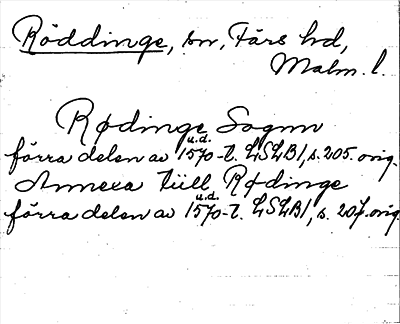 Röddinge, sn, Färs hd,
Malm. l.
Rødinge Sognn
förra delen av 1570-t. LSLB1, s. 205. orig.
u.d.
Annexa tiill Rødinge
förra delen av 1570-t. LSLB1, s. 207. orig.
u.d.